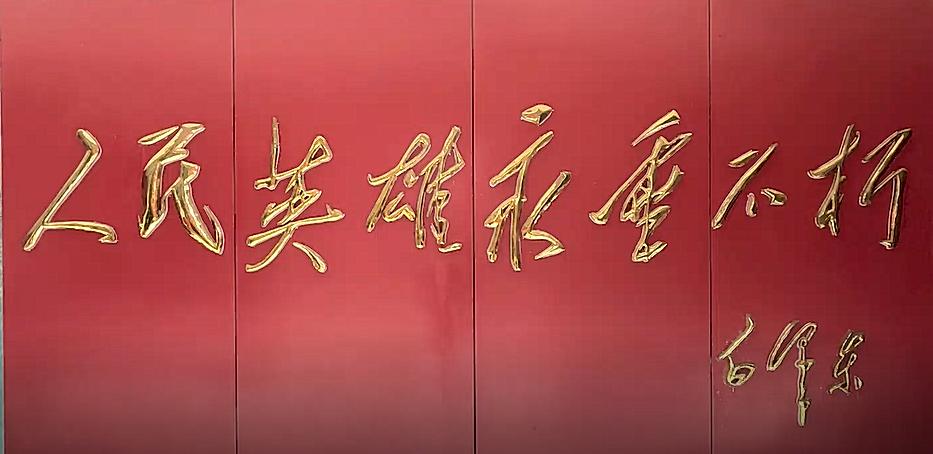 人民英雄永垂不朽
毛泽东